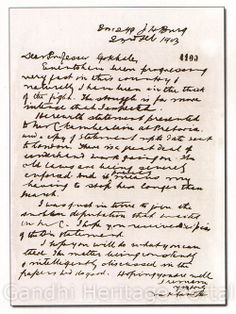 Box 2 Jo'Burg
23rd Feb 1903
Dear Professor Gokhale, 4103
Events have been progressing
very fast in this country &
naturally I have been in the thick
of the fight. The struggle is far more
intense than I expected.
Herewith statement presented
to Mr Chamberlain at Pretoria
and copy of statement up to date sent
to London. There is a great deal of
underhand work going on. The
old laws are being severely
enforced and it probably means my
having to stop here longer than
March.
I was just in time to join the
deputation that waited
on Mr C. I hope you received copies
of the statement.
I hope you will do what you can
The matter being constantly
& intelligently discussed in the
papers Hoping you are well
I remain
yours
Gandhi Heritage Portal